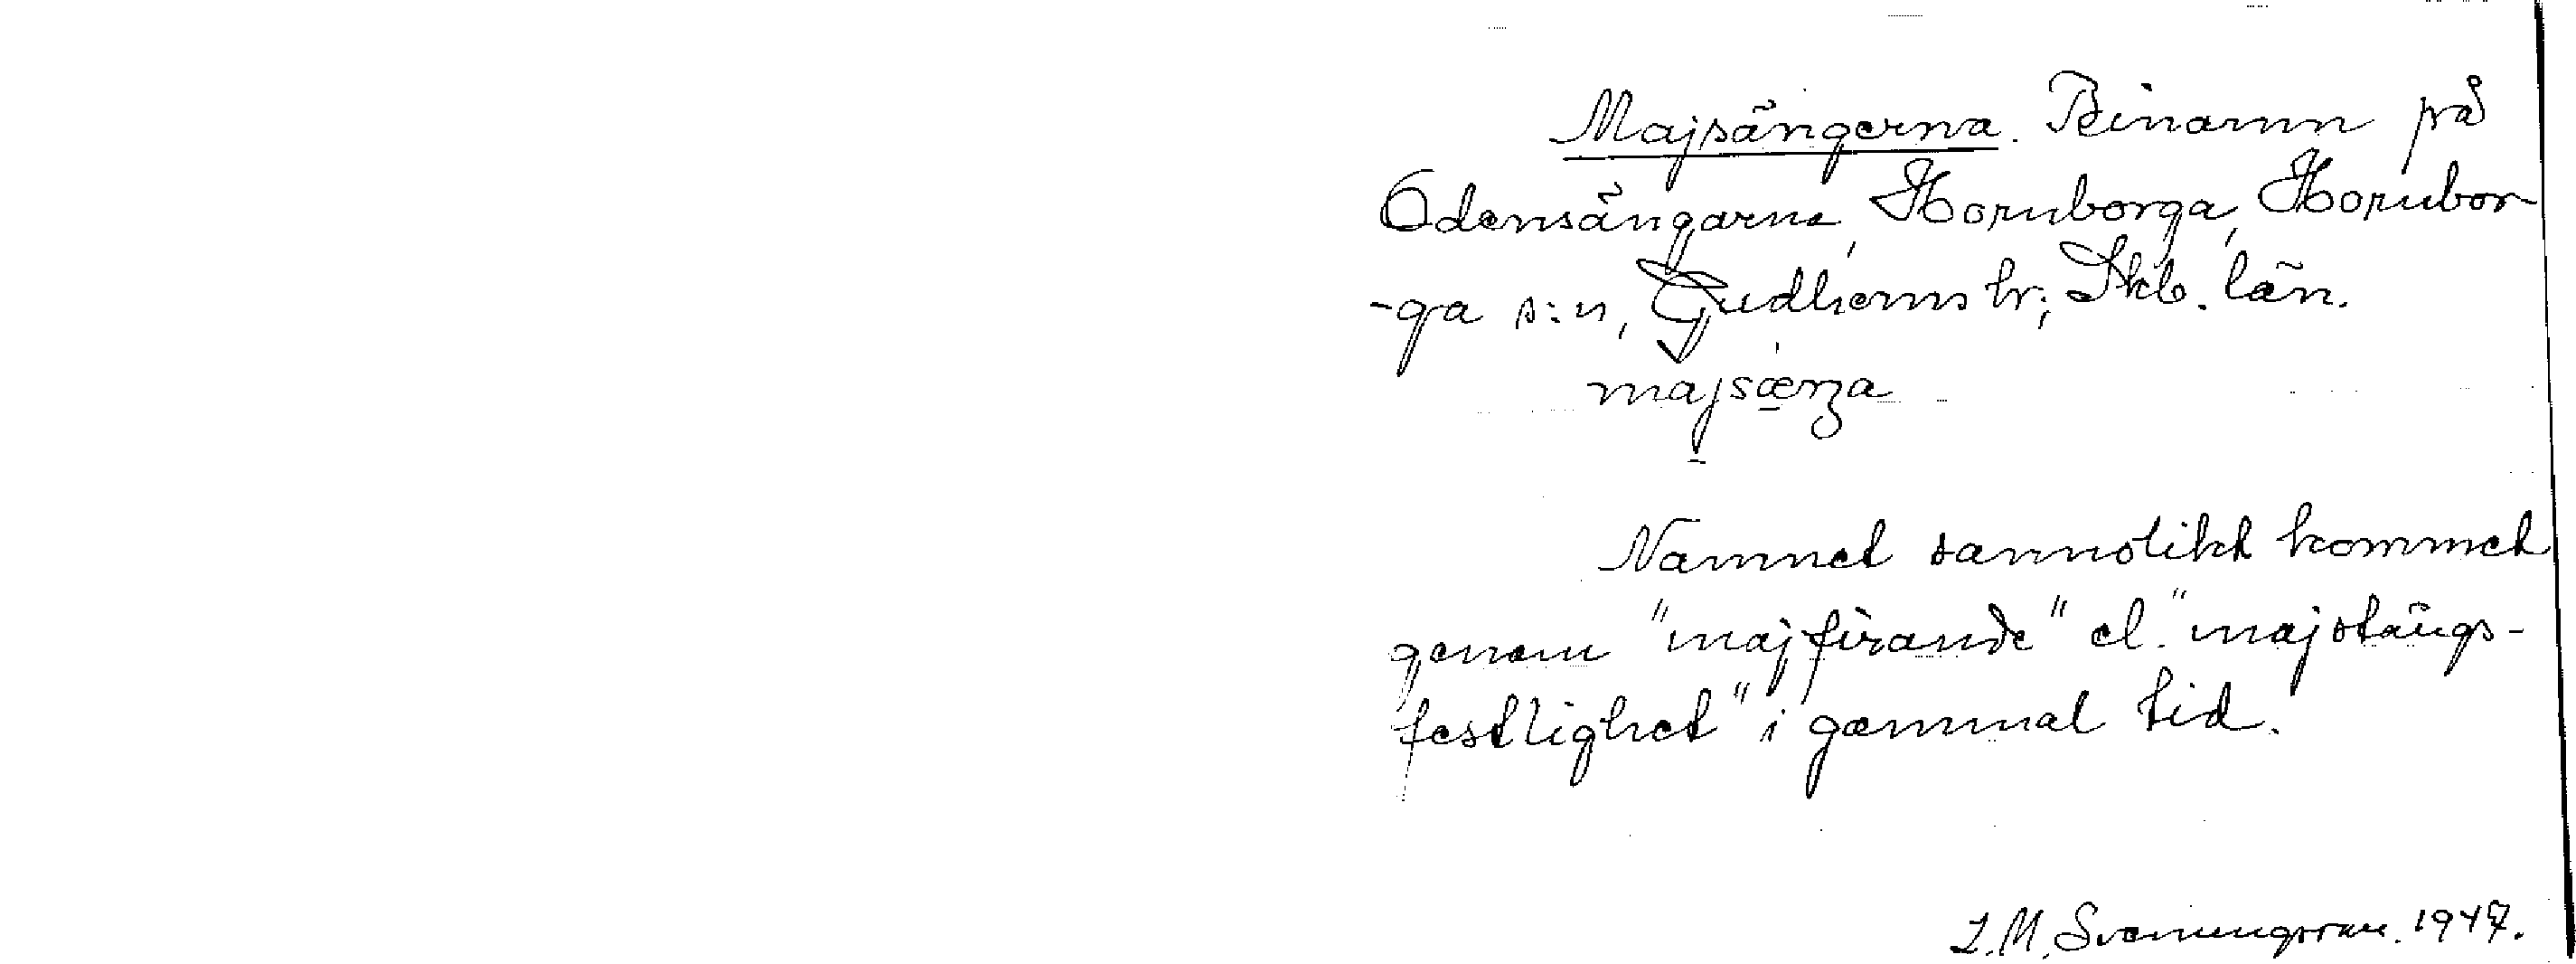 Majsängerna. Binamn på
Odensängarna, Hornborga, Hornbor-
-ga s:n, Gudhems hr; Skb. län.
majsæŋa
Namnet sannolikt kommet
genom "majfirande" el. "majstångs-
festlighet" i gammal tid.
L.M. Svenungsson. 1947.